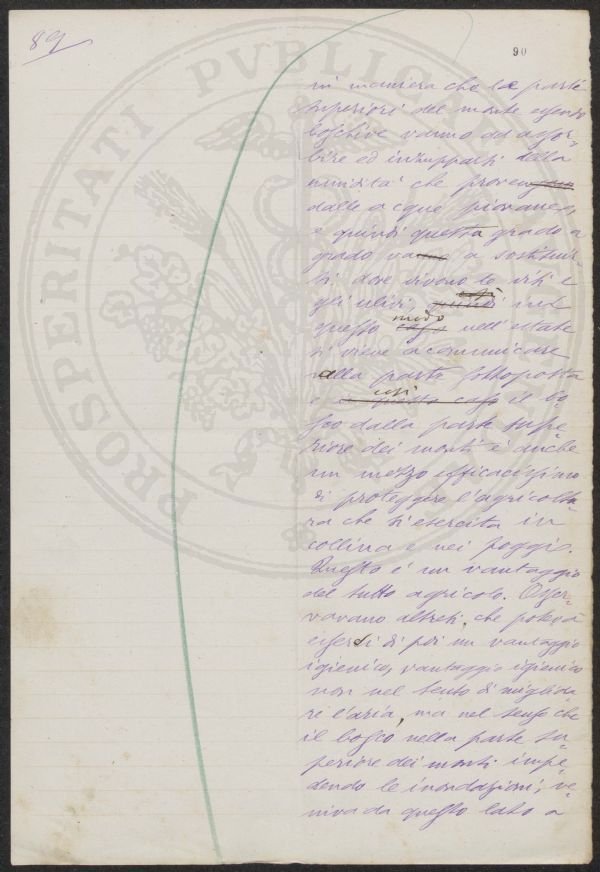 89
90
PROSPERITATI PVBLICAE
in maniera che le parti
superiori del monte essendo
boschive vanno ad assor-
bire ed inzupparsi della
umidità che proven
dalle acque piovane,
e quindi questa grado a
grado va a sostituir-
si dove vivono le viti e
gli ulivi,
questo modo nell'estate
si viene a comunicare
alla parte sottoposta
e così il bo-
sco dalla parte supe-
riore dei monti è anche
un mezzo efficacissimo
di proteggere l'agricoltu-
ra che si esercita in
collina e nei poggi.
Questo è un vantaggio
del tutto agricolo. Osser-
vavano altresì, che poteva
esservi di poi un vantaggio
igienico, vantaggio igienico
non nel senso di migliora-
re l'aria, ma nel senso che
il bosco nella parte su-
periore dei monti impe-
dendo le inondazioni, ve-
niva da questo lato a